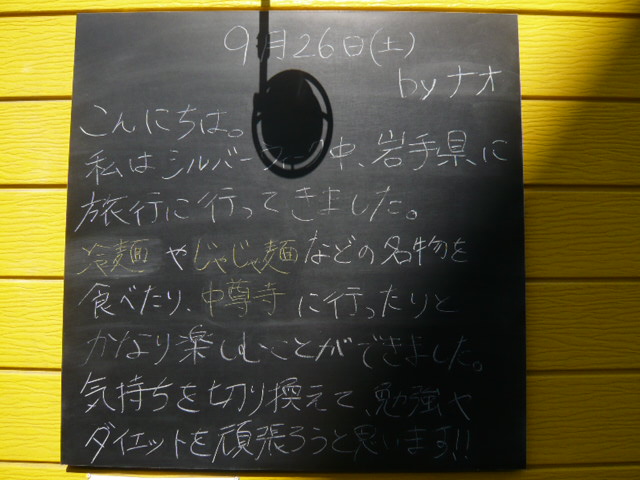 9月26日(土)
by ナオ
こんにちは。
私はシルバーウィーク中、岩手県に
旅行に行ってきました。
冷麺やじゃじゃ麺などの名物を
食べたり、中尊寺に行ったりと
かなり楽しむことができました。
気持ちを切り換えて、勉強や
ダイエットを頑張ろうと思います!!